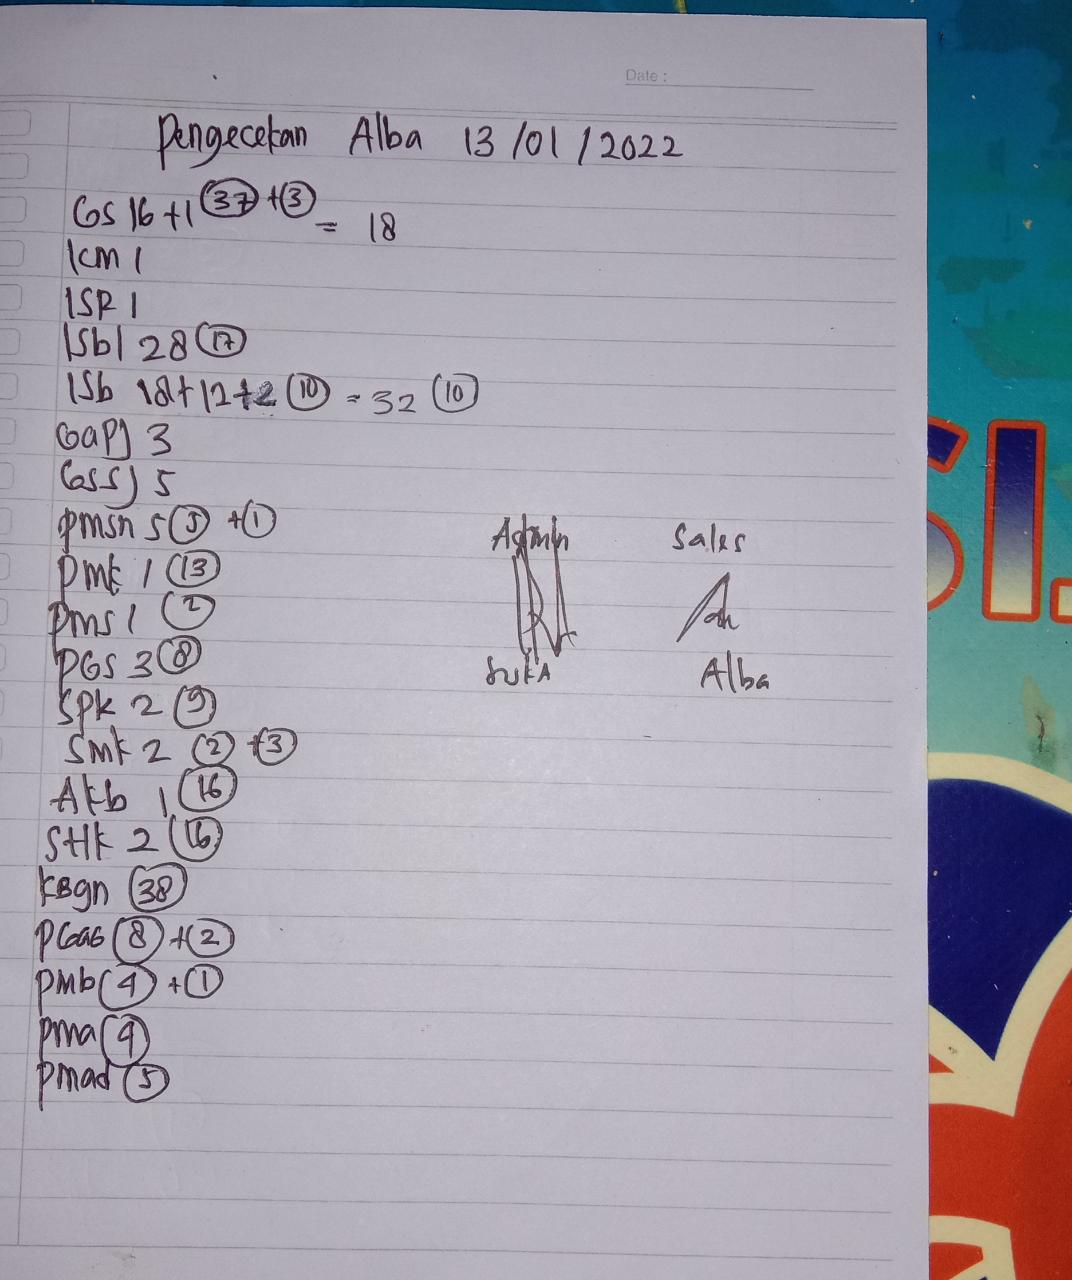 Date :
Pengecekan Alba 13/01/2022
GS 16 +1 (37) + (3) = 18
KM 1
ISR 1
ISbl 28 (17)
ISb 18+12+2 (10) = 32 (10)
GaPJ 3
GSSJ 5
pmsn 5 (5) + (1)
pmk 1 (13)
pms 1 (2)
PGS 3 (8)
SPK 2 (9)
Smk 2 (2) + (3)
Akb 1 (16)
StHk 2 (16)
KBgn (38)
PGab (8) + (2)
PMb (4) + (1)
pma (4)
pmad (5)
Admin Sales
SukA Alba
SI